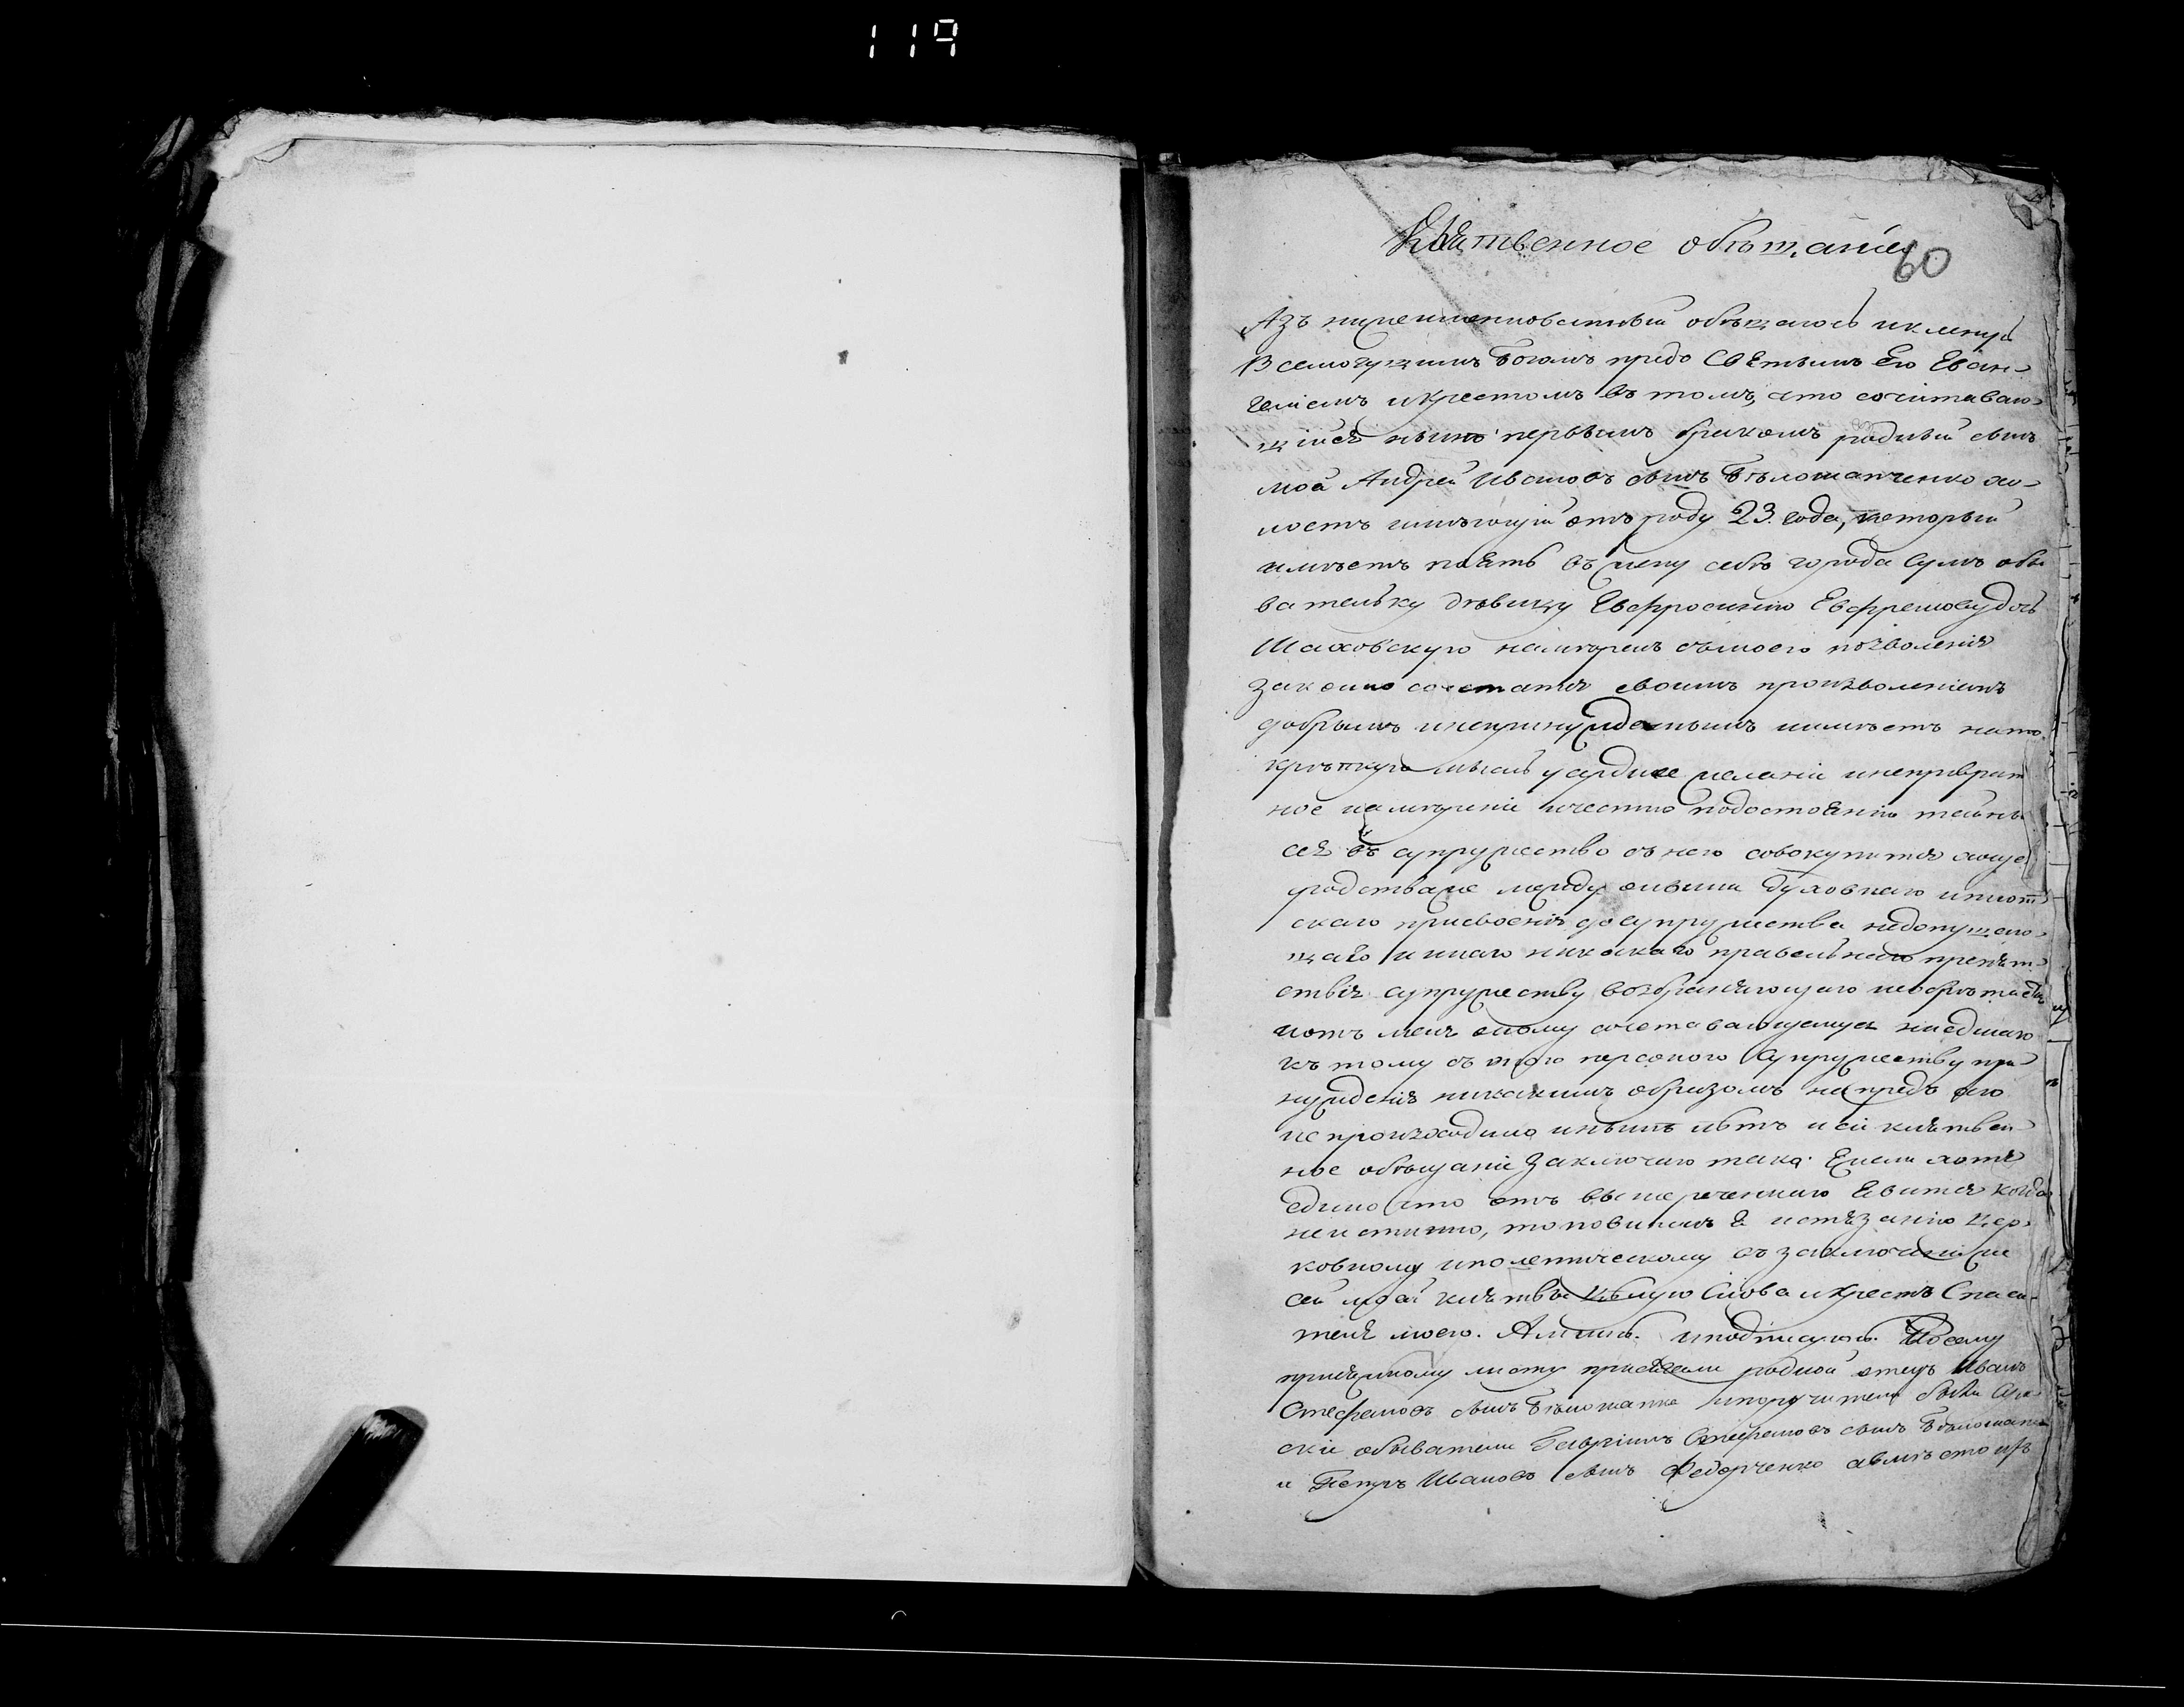 119
Клятвенное обѣщаніе
60
Азъ нижеименованный обѣщаюсь и кленусь
Всемогущимъ Богомъ предъ Святымъ Его Еван-
геліемъ и Крестомъ въ томъ, что сочитаваю-
щійся нынѣ первымъ бракомъ родный сынъ
мой Андрей Ивановъ сынъ Бѣлошапченко хо-
лостъ имѣющій отъ роду 23. года, который
имѣетъ поять въ жену себѣ города Сумъ обы
вательку дѣвицу Евфросинію Евфремову дочь
Шаховскую намѣренъ съ моего позволенія
законно сочетатся своимъ произволеніемъ
добрымъ и непринужденнымъ имѣетъ на то
крѣпкую мысль усердное желаніе и непреврат
ное намѣреніе и честно по достоянію тайны
сея въ супружество съ нею совокупится
родства же между оными духовнаго и плот
скаго присвоенія до супружества недопущаю-
щаго и инаго никакаго правельнаго препят-
ствія супружеству возбраняющаго необрѣтается
и отъ мене оному сочетавающемуся
къ тому съ оною персоною супружеству при-
нужденія никакимъ образомъ напредъ сего
не происходило и нынѣ нѣтъ и сіе клятвен-
ное обѣщаніе заключаю тако: Ежели хотя
едино что отъ вышереченнаго явится когда
неистинно, то повиненъ я истязанію цер-
ковному и политическому въ заключеніи же
сей моей клятвы цѣлую Слова и Крестъ Спаси-
теля моего. Аминь. и подписуюсь. По сему
присяжному листу присягали родной отецъ Иванъ
Стефановъ сынъ Бѣлошапка и поручители были Сум-
скіе обыватели Гавріилъ Стефановъ сынъ Бѣлошапка
и Петръ Ивановъ сынъ Федорченко а вмѣсто ихъ